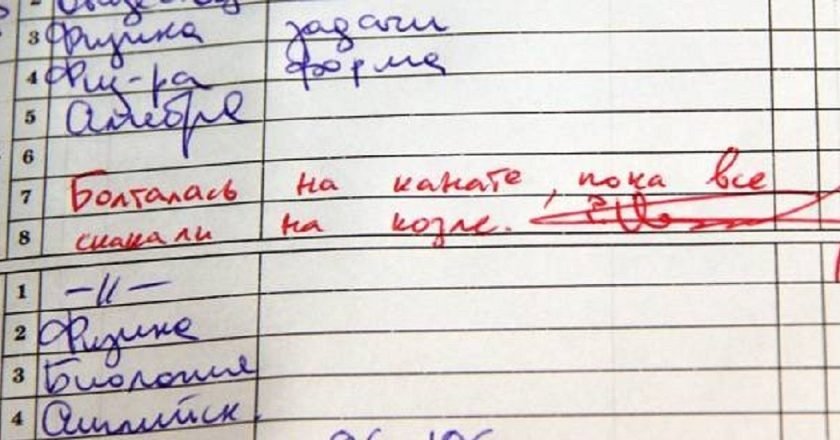 3 Физика задачи
4 Физ-ра форма
5 Алгебра
6
7 Болталась на канате, пока все
8 скакали на козле.
1 –〃–
2 Физика
3 Биология
4 Английск.